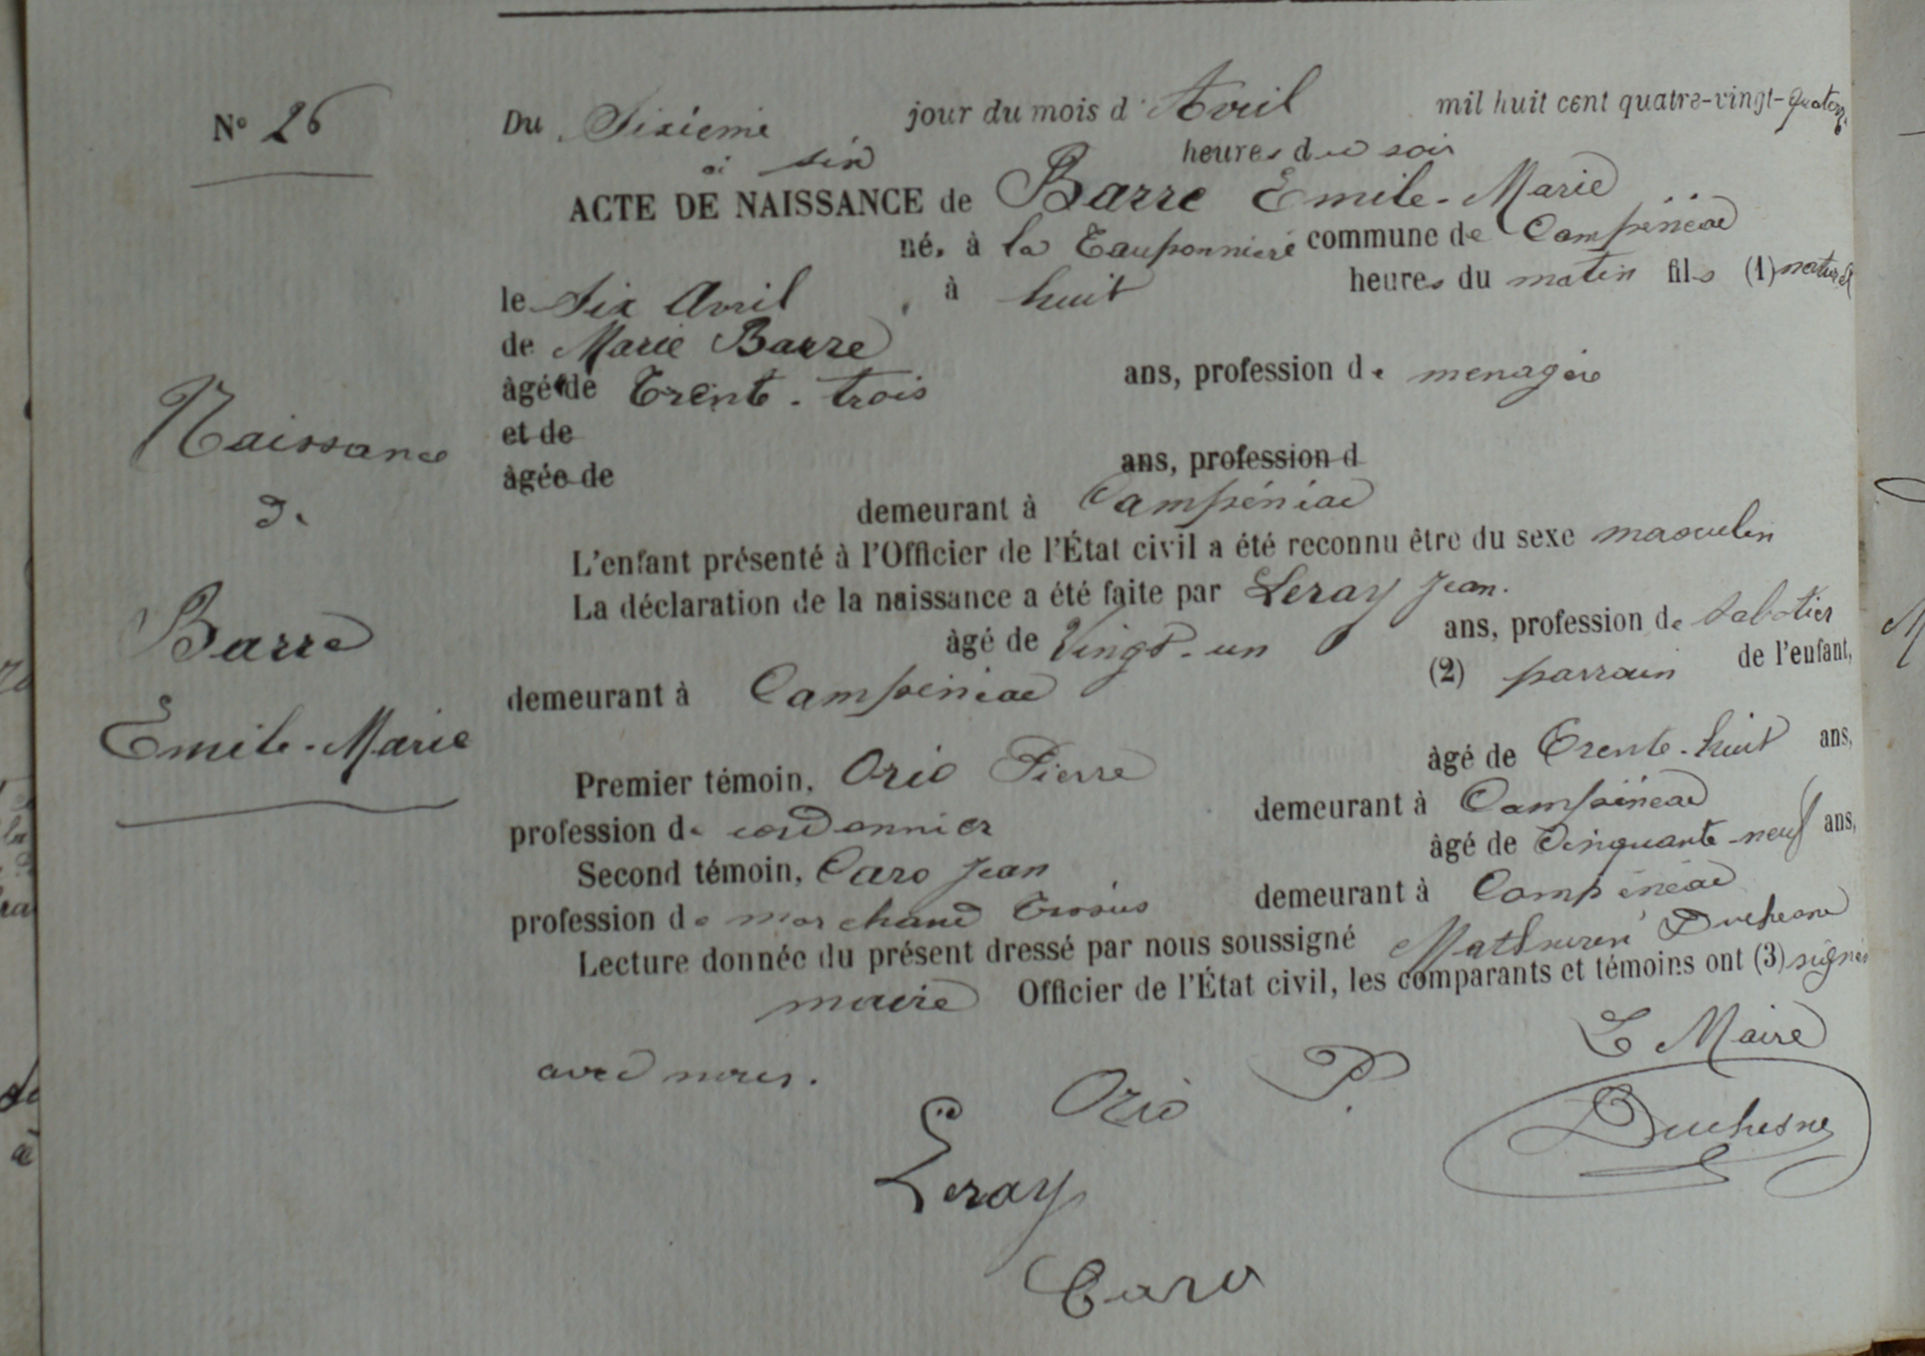 N° 26
Du Sixième jour du mois d'Avril mil huit cent quatre-vingt-quatorze
à six heures du soir
ACTE DE NAISSANCE de Barre Emile-Marie
né, à la Tauponnière commune de Campénéac
le Six Avril, à huit heures du matin fils (1) naturel
de Marie Barre
âgée de Trente-trois ans, profession de menagère
et de
âgée de ans, profession d
demeurant à Campénéac
L'enfant présenté à l'Officier de l'État civil a été reconnu être du sexe masculin
La déclaration de la naissance a été faite par Leray Jean.
âgé de Vingt-un ans, profession de sabotier
demeurant à Campénéac (2) parrain de l'enfant,
Premier témoin, Orio Pierre âgé de Trente-huit ans,
profession de cordonnier demeurant à Campénéac
Second témoin, Caro Jean âgé de Cinquante-neuf ans,
profession de marchand demeurant à Campénéac
Lecture donnée du présent dressé par nous soussigné Mathurin Duchesne
maire Officier de l'État civil, les comparants et témoins ont (3) signé
avec nous.
Naissance
de
Barre
Emile-Marie
Le Maire
Orio P.
Duchesne
Leray
Caro